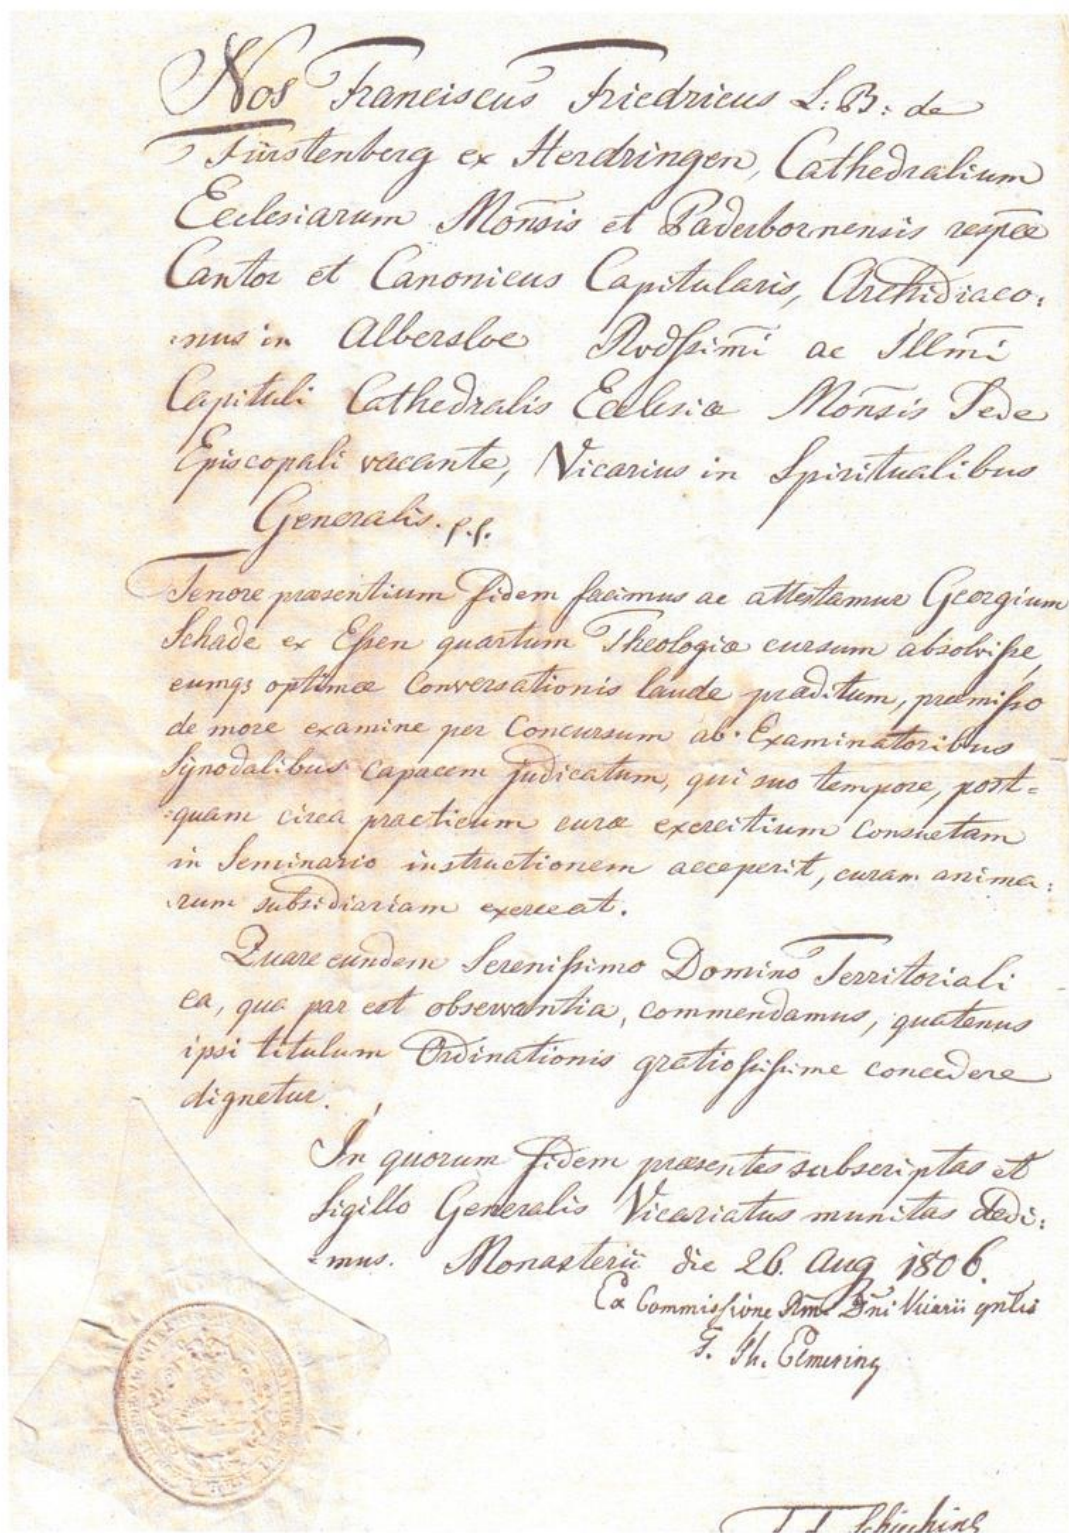 Nos Franciscus Friedricus L: B: de
Fürstenberg ex Herdringen, Cathedralium
Ecclesiarum Mon̄sis et Paderbornensis respēe
Cantor et Canonicus Capitularis, Archidiaco:
:nus in Albersloe Rvdssimi ac Illmi
Capituli Cathedralis Ecclesiæ Mon̄sis Sede
Episcopali vacante, Vicarius in Spiritualibus
Generalis.
Tenore præsentium fidem facimus ac attestamur Georgium
Schade ex Essen quartum Theologiæ cursum absolvisse,
eumq; optimæ Conversationis laude præditum, præmisso
de more examine per Concursum ab Examinatoribus
Synodalibus capacem judicatum, qui suo tempore, post=
:quam circa practicum curæ exercitium Consuetam
in Seminario instructionem acceperit, curam anima:
:rum subsidiariam exerceat.
Quare eundem Serenissimo Domino Territoriali
ea, qua par est observantia, commendamus, quatenus
ipsi titulum Ordinationis gratiossissime concedere
dignetur.
In quorum fidem præsentes subscriptas et
Sigillo Generalis Vicariatus munitas dedi:
=mus. Monasterii die 26. Aug 1806.
Ex Commissione Rm̄i Dn̄i Vicarii gn̄lis